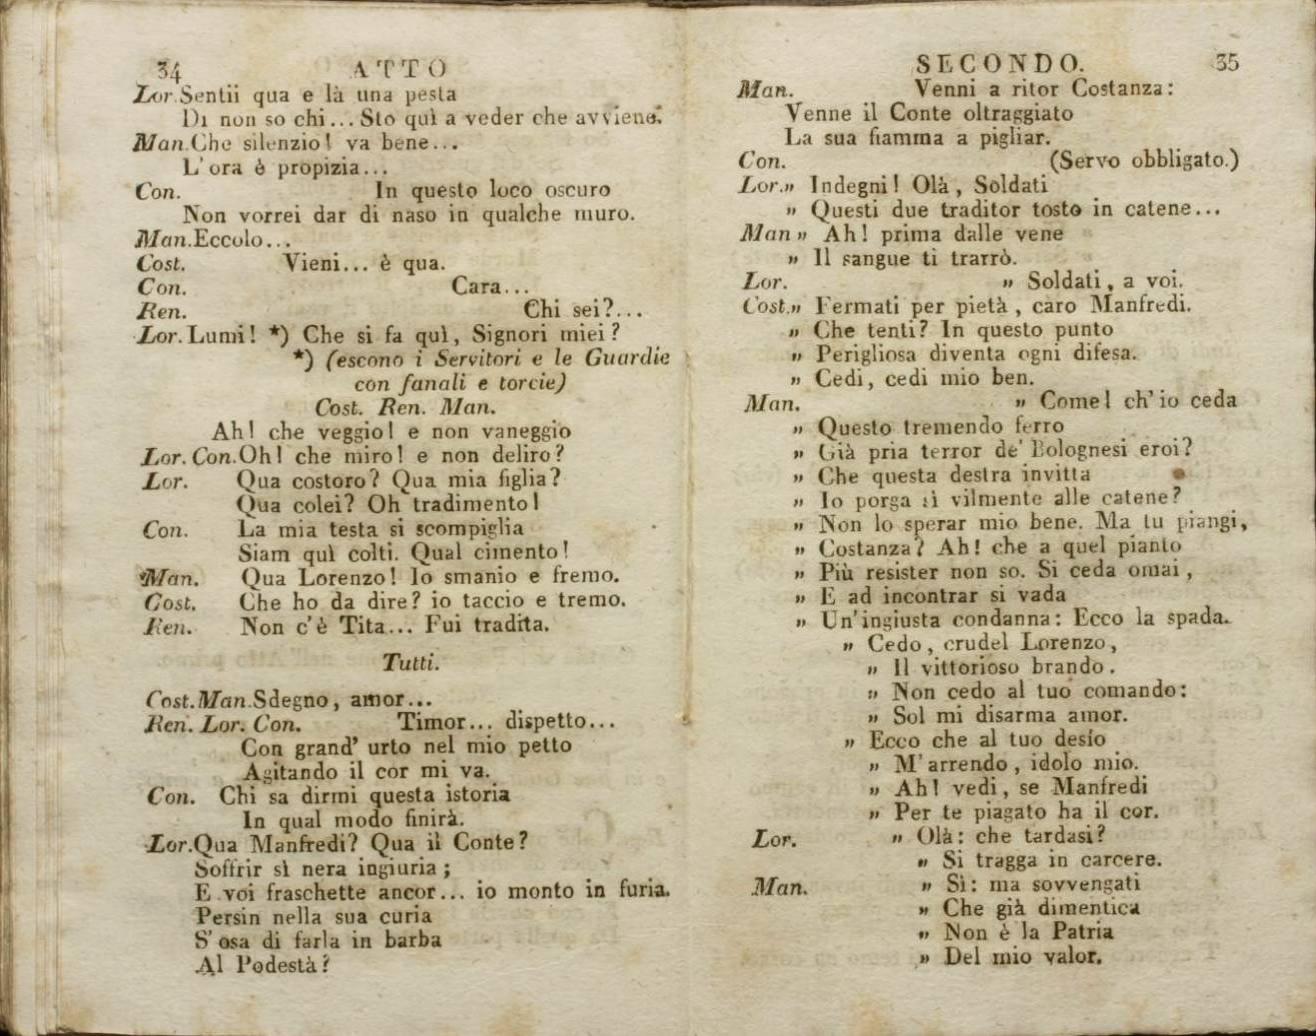 34 ATTO
Lor. Sentii qua e là una pesta
Di non so chi... Sto quì a veder che avviene.
Man. Che silenzio! va bene...
L'ora è propizia...
Con. In questo loco oscuro
Non vorrei dar di naso in qualche muro.
Man. Eccolo...
Cost. Vieni... è qua.
Con. Cara...
Ren. Chi sei?...
Lor. Lumi! *) Che si fa quì, Signori miei?
*) (escono i Servitori e le Guardie
con fanali e torcie)
Cost. Ren. Man.
Ah! che veggio! e non vaneggio
Lor. Con. Oh! che miro! e non deliro?
Lor. Qua costoro? Qua mia figlia?
Qua colei? Oh tradimento!
Con. La mia testa si scompiglia
Siam quì colti. Qual cimento!
Man. Qua Lorenzo! Io smanio e fremo.
Cost. Che ho da dire? io taccio e tremo.
Ren. Non c'è Tita... Fui tradita.
Tutti.
Cost. Man. Sdegno, amor...
Ren. Lor. Con. Timor... dispetto...
Con grand' urto nel mio petto
Agitando il cor mi va.
Con. Chi sa dirmi questa istoria
In qual modo finirà.
Lor. Qua Manfredi? Qua il Conte?
Soffrir sì nera ingiuria;
E voi fraschette ancor... io monto in furia.
Persin nella sua curia
S'osa di farla in barba
Al Podestà?
SECONDO. 35
Man. Venni a ritor Costanza:
Venne il Conte oltraggiato
La sua fiamma a pigliar.
Con. (Servo obbligato.)
Lor. „ Indegni! Olà, Soldati
„ Questi due traditor tosto in catene...
Man „ Ah! prima dalle vene
„ Il sangue ti trarrò.
Lor. „ Soldati, a voi.
Cost. „ Fermati per pietà, caro Manfredi.
„ Che tenti? In questo punto
„ Perigliosa diventa ogni difesa.
„ Cedi, cedi mio ben.
Man. „ Come! ch'io ceda
„ Questo tremendo ferro
„ Già pria terror de' Bolognesi eroi?
„ Che questa destra invitta
„ Io porga sì vilmente alle catene?
„ Non lo sperar mio bene. Ma tu piangi,
„ Costanza? Ah! che a quel pianto
„ Più resister non so. Si ceda omai,
„ E ad incontrar si vada
„ Un'ingiusta condanna: Ecco la spada.
„ Cedo, crudel Lorenzo,
„ Il vittorioso brando.
„ Non cedo al tuo comando:
„ Sol mi disarma amor.
„ Ecco che al tuo desio
„ M'arrendo, idolo mio.
„ Ah! vedi, se Manfredi
„ Per te piagato ha il cor.
Lor. „ Olà: che tardasi?
„ Si tragga in carcere.
Man. „ Sì: ma sovvengati
„ Che già dimentica
„ Non è la Patria
„ Del mio valor.